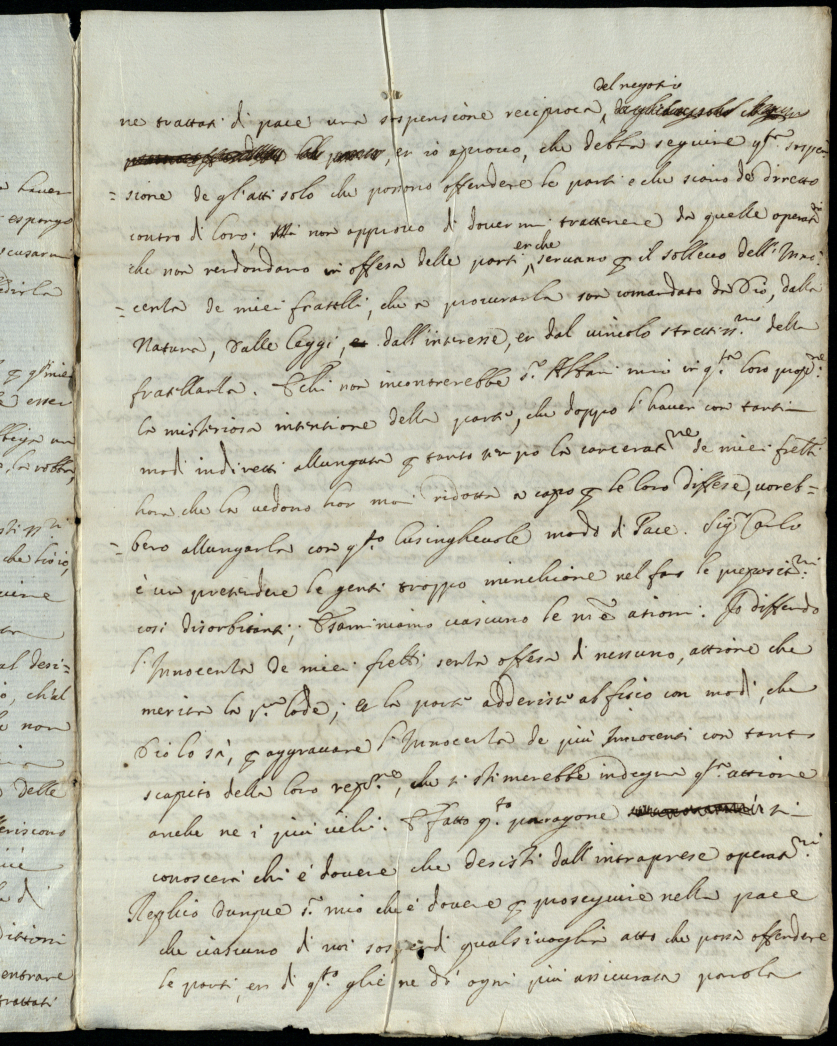 del negotio
ne trattati di pace una sospensione reciproca,
et io approvo, che debba seguire q.ta sospen
= sione de gl'atti solo che possono offendere le parti e che siano de diretto
contro di loro; Mà non approvo di dovermi trattenere da quelle operat.ni
che non redondano in offesa delle parti, et che servano p il sollevo dell'Inno-
= cenza de miei fratelli, che a procurarla son comandato da Dio, dalla
Natura, dalle leggi, dall'interesse, et dal vincolo strettiss.mo della
fratellanza. E chi non incontrerebbe s.r mio in q.ta loro propos.ne
la misteriosa intentione della parte, che doppo l'haver con tanti
modi indiretti allungata p tanto tempo la carcerat.ne de miei frelli
hora che la vedono hor mai ridotta a capo p le loro diffese, voreb=
= bero allungarla con q.to lusinghevole modo di Pace. Sig.r Carlo
è un pretendere le genti troppo minchione nel far le proposit.ni
così disorbitanti; Esaminiamo ciascuno le n.re ationi. Io diffendo
l'Innocenza de miei frelli senza offesa di nessuno, attione che
merita la p.ma lode; et la parte adderisce al fisco con modi, che
Dio lo sà, p aggravare l'Innocenza de più Innocenti con tanto
scapito della loro reput.ne, che si stimerebbe indegna q.ta attione
anche ne i più vili. E fatto q.to paragone si
conoscerà chi è dovere che desisti dall'intraprese operat.ni
Replico dunque s.r mio che è dovere p proseguire nella pace
che ciascuno di noi sospendi qualsivoglia atto che possa offendere
le parti, et di q.to gliè ne dò ogni più assicurata parola
haver
espongo
scusarmi
esser
la robba
al desi=
ch'el
non
delle
di
entrare
trattati